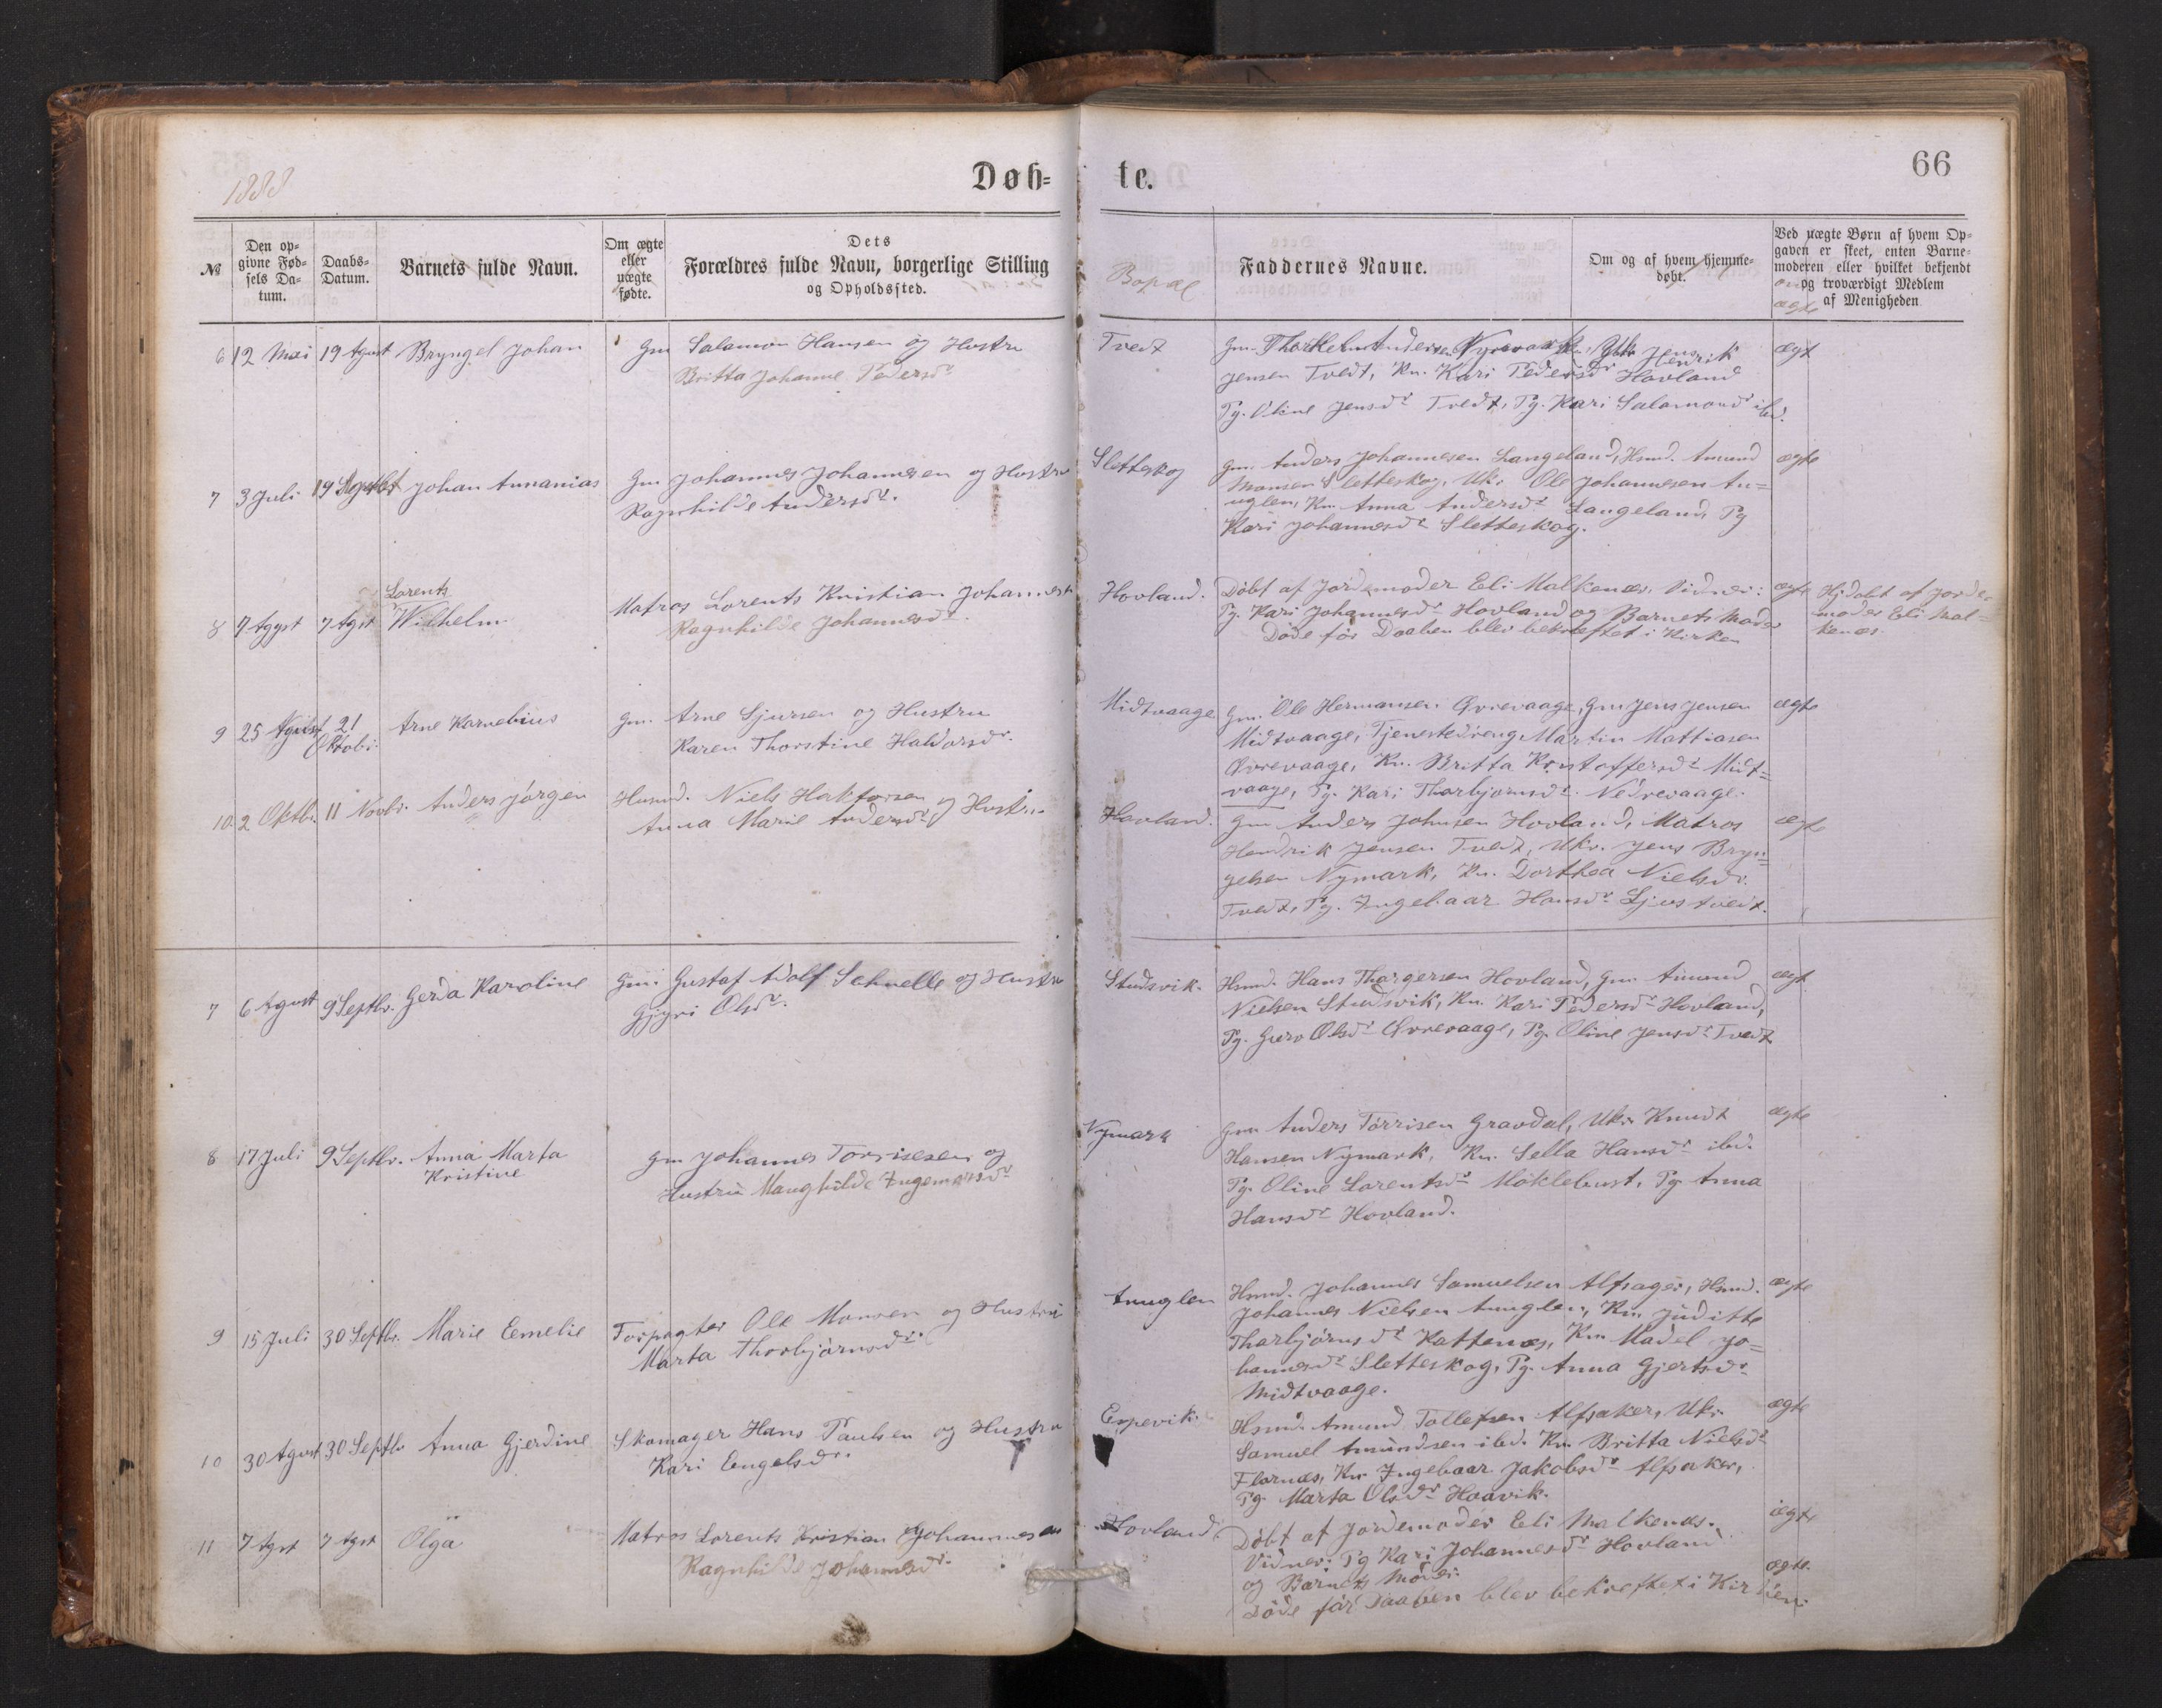 1888
Døb-
te.
66
№
Den op-
givne Fød-
sels Da-
tum.
Daabs-
Datum.
Barnets fulde Navn.
Om ægte
eller
uægte
fødte.
Dets
Forældres fulde Navn, borgerlige Stilling
og Opholdssted.
Bopæl
Faddernes Navne.
Om og af hvem hjemme-
døbt.
Ved uægte Børn af hvem Op-
gaven er skeet, enten Barne-
moderen eller hvilket bekjendt
og troværdigt Medlem
af Menigheden
om
ægte
6 12 Mai 19 Agust Bryngel Johan
Gm Salamon Hansen og Hustru
Britta Johanne Pedersdr
Tvedt
Gm. Thorkel Andersen Nymark, Jens Henrik
Jensen Tvedt, Kn. Kari Pedersdr Hovland
Pg. Oline Jensdr Tvedt, Pg. Kari Salamonsdr ibd.
ægt
7 3 Juli 19 Agust Johan Annanias
Gm Johannes Johannesen og Hustru
Ragnhilde Andersdr.
Sletteskog
Gm. Anders Johannesen Langeland, Hsmd. Amund
Monsen Sletteskog, Uk. Ole Johannesen An-
uglen, Kn. Anna Andersdr Langeland, Pg
Kari Johannesdr Sletteskog.
ægte
8 7 Agust 7 Agst Lorents
Wilhelm
Matros Lorents Kristian Johannesen
Ragnhilde Johannesdr
Hovland.
Döbt af Jordemoder Eli Malkenæs. Vidner:
Pg. Kari Johannesdr Hovland og Barnets Moder
Döde för Daaben blev bekreftet i Kirken
ægte
Hjdöbt af Jorde-
moder Eli Mal-
kenæs.
9 25 Agust 21
Oktobr.
Arne Kornebius
Gm. Arne Sjursen og Hustru
Karen Thorstine Haldorsdr.
Midtvaage
Gm. Ole Hermansen Øvrevaage, Gm Jens Jensen
Midtvaage, Tjenestedreng Martin Mattiasen
Øvrevaage, Kn. Britta Kristoffersdr Midt-
vaage, Pg. Kari Thorbjörnsdr. Nedrevaage.
ægte
10 2 Oktbr. 11 Novbr. Anders Jörgen
Husmd. Niels Haktorsen og Hustru
Anna Marie Andersdr
Hovland.
Gm Anders Johnsen Hovland, Matros
Hendrik Jensen Tvedt, Ukr. Jens Bryn-
gelsen Nymark, Kn. Dorthea Nielsdr.
Tvedt, Pg. Ingebaar Hansdr Ljostvedt.
ægte
7 6 Agust 9 Septbr. Gerda Karoline
Gm. Gustaf Adolf Schnelle og Hustru
Gjyri Olsdr.
Studsvik.
Hsmd. Hans Thorgersen Hovland, Gm. Amund
Nielsen Studsvik, Kn. Kari Pedersdr Hovland,
Pg. Guro Olsdr Øvrevaage, Pg. Oline Jensdr Tvedt
ægt
8 17 Juli 9 Septbr. Anna Marta
Kristine
Gm Johannes Torrisesen og
Hustru Manghilde Ingemarsdr
Nymark
Gm Anders Törrisen Gravdal, Ukr. Knudt
Hansen Nymark, Kn. Sella Hansdr ibd.
Pg. Oline Lorentsdr Möklebust, Pg. Anna
Hansdr Hovland.
ægte
9 15 Juli 30 Septbr. Marie Eemelie
Forpagter Ole Monsen og Hustru
Marta Thorbjörnsdr.
Anuglen
Hsmd. Johannes Samuelsen Alfsager, Hsmd.
Johannes Nielsen Anuglen, Kn. Juditte
Thorbjörnsdr Kattenæs, Kn. Madel Jo-
hannesdr Sletteskog, Pg. Anna Gjertsdr.
Midtvaage.
ægte
10 30 Agust 30 Septbr Anna Gjerdine
Skomager Hans Paulsen og Hustru
Kari Engelsdr.
Espevik.
Hsmd. Amund Tollefsen Alfsaker, Ukr.
Samuel Amundsen ibd. Kn Britta Nielsdr
Flornæs, Kn Ingebaar Jakobsdr Alfsaker,
Pg. Marta Olsdr Haavik.
ægte
11 7 Agst 7 Agst Olga
Matros Lorents Kristian Johannesen
Ragnhilde Johannesdr.
Hovland
Döbt af Jordemoder Eli Malkenæs.
Vidner: Pg Kari Johannesdr Hovland
og Barnets Moder.
Döde för Daaben blev bekreftet i Kirken.
ægte
ægte.